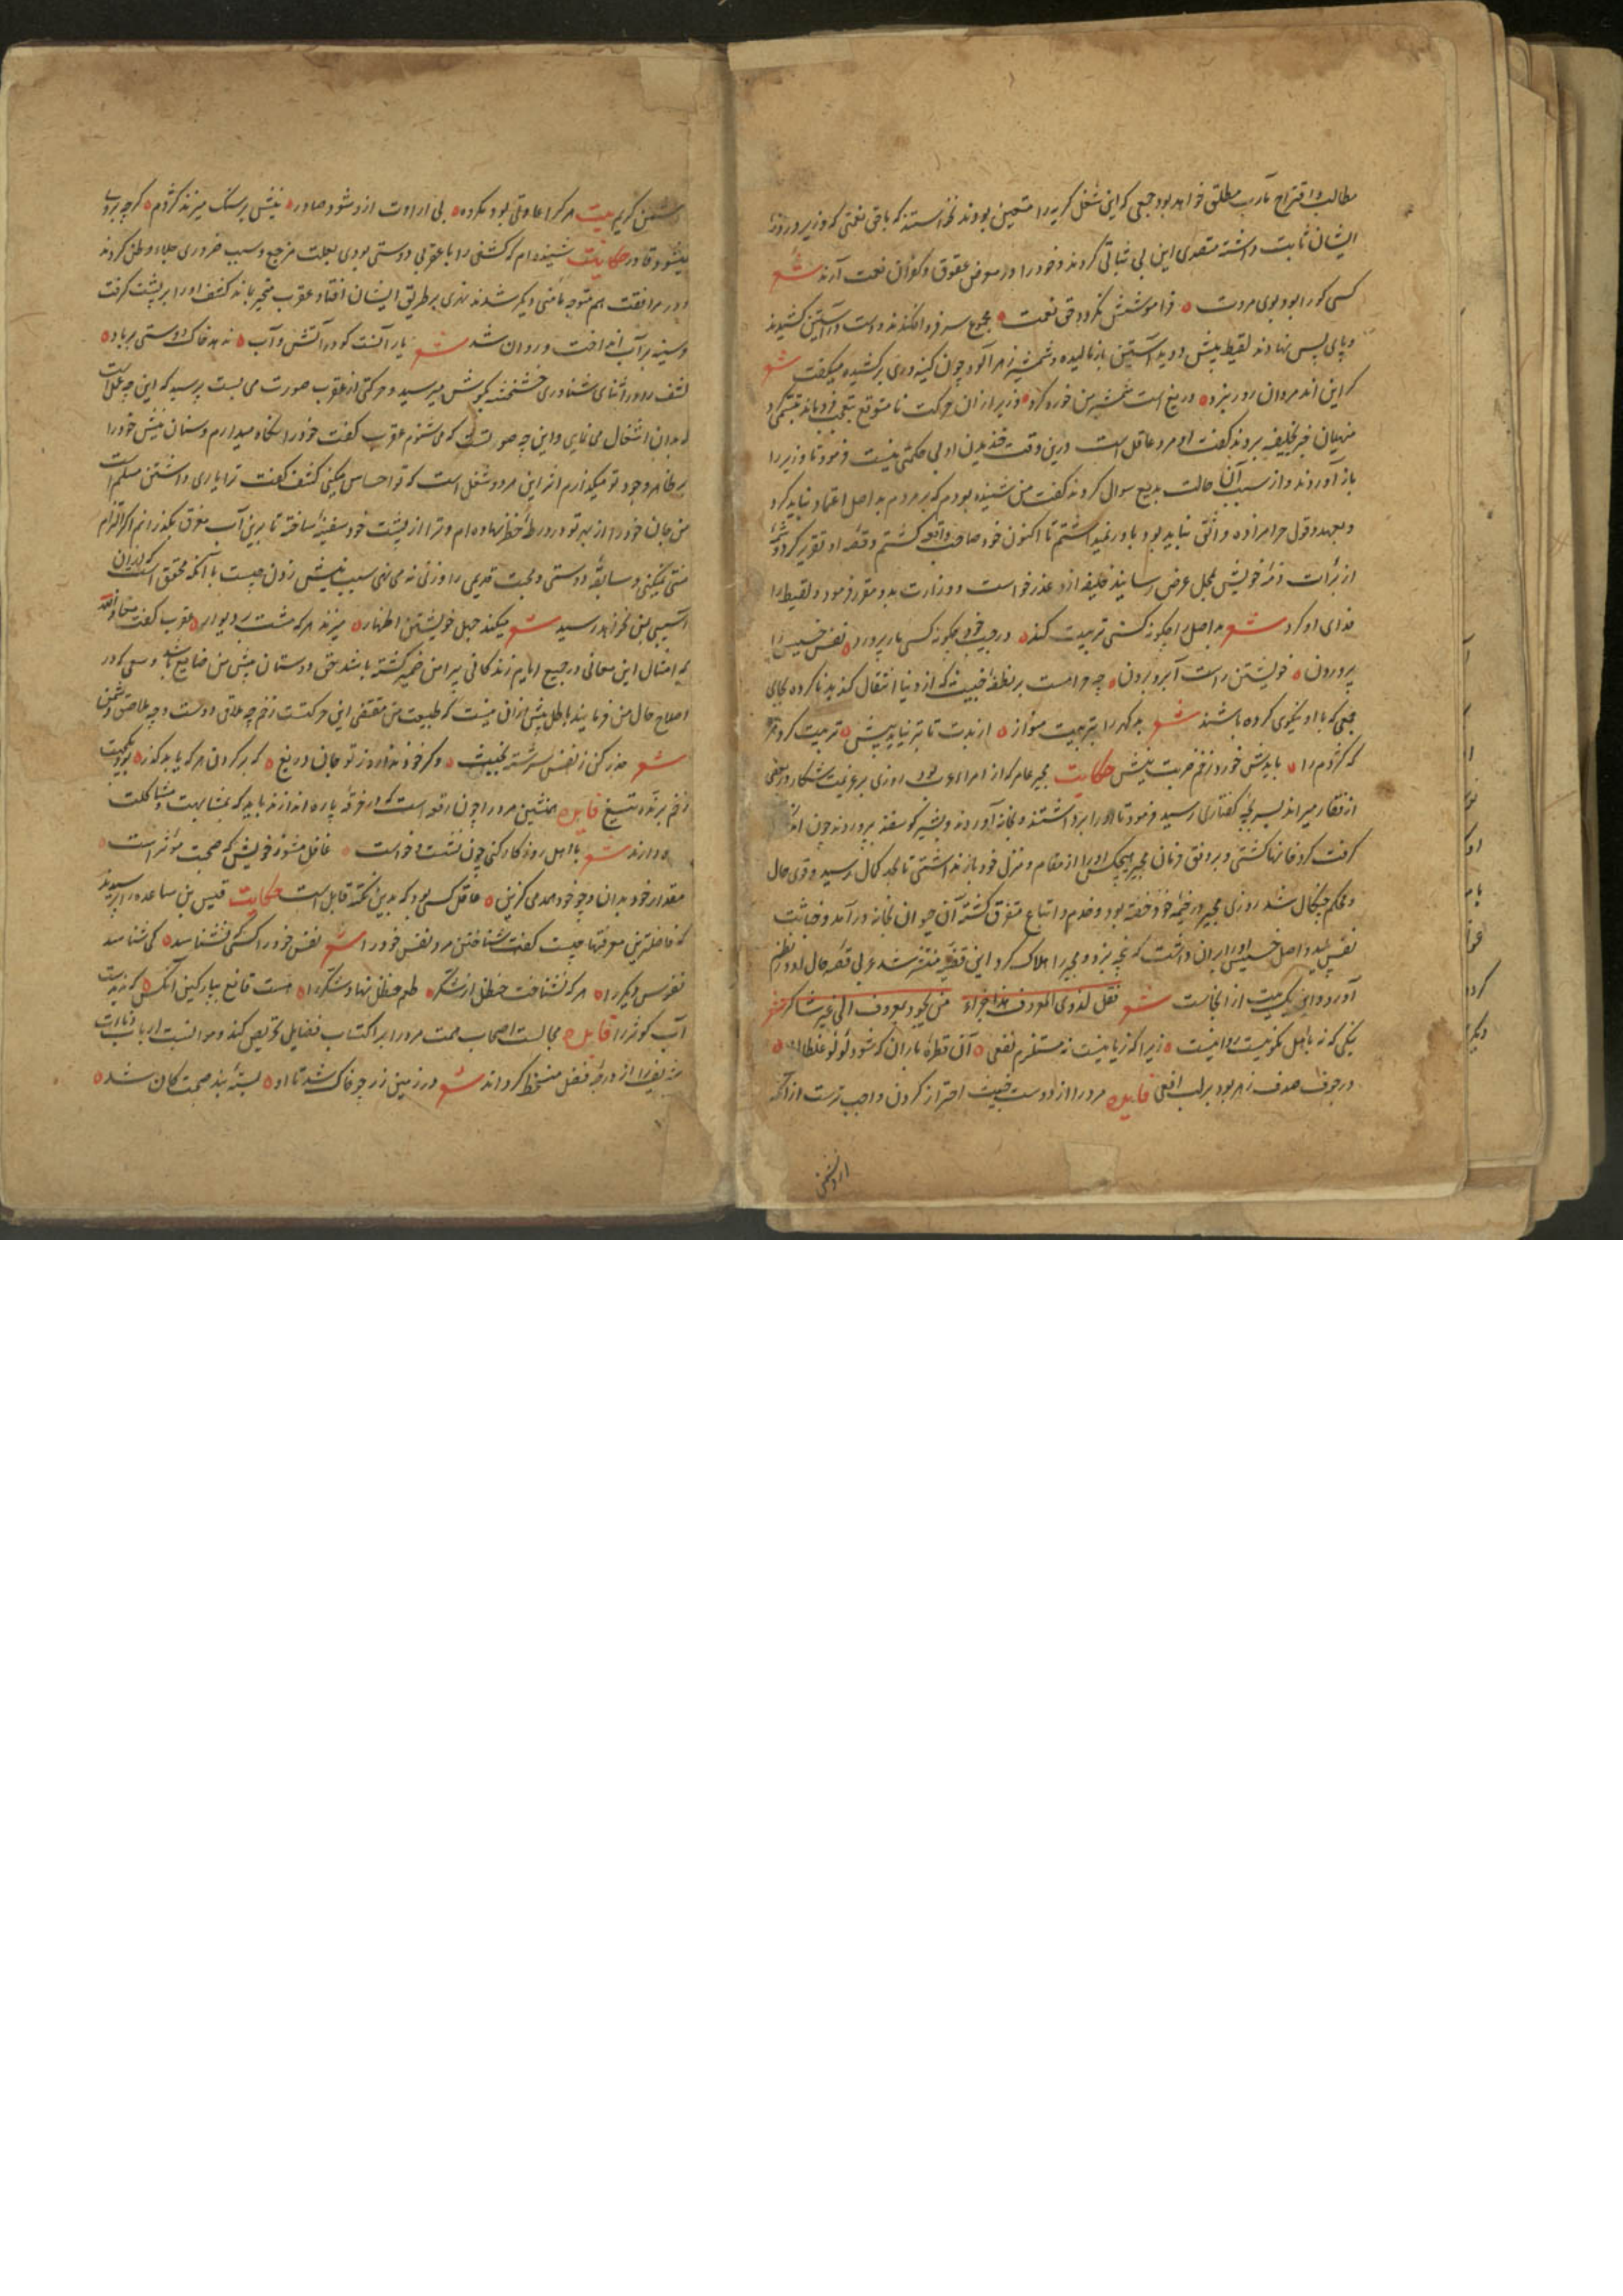 مطالب و اقتراح مآرب مطلق خواهد بود جمعی که این شغل کریه را متعین بودند نخواستند که باقی نعمتی که وزیر در روز
ایشان ثابت داشته متصدی این بی ثباتی کردند و خود را در معرض عقوق و کفران نعمت آرند شعر
کسی کو را بود بوی مروت فراموشش نگردد حق نعمت مجموع سر فرو افکندند و دست در آستین کشیدند
و پای پس نهادند لقیط پیش دوید آستین باز مالیده و شمشیر زهر آلود چون کینه وری برکشیده میگفت شعر
که این اند مردان روز نبرد دریغ است شمشیر من خورد کرد وزیر از آن حرکت نا متوقع بتعجب فرو ماند تبسمی کرد
منهیان خبر بخلیفه بردند گفت او مرد عاقل است درین وقت خندیدن او بی حکمتی نیست فرمود تا وزیر را
باز آوردند و از سبب آن حالت بدیع سوال کردند گفت من شنیده بودم که بر مردم بد اصل اعتماد نباید کرد
و بعهد و قول حرامزاده واثق نباید بود باور نمیداشتم تا اکنون خود صاحب واقعه گشتم و قصه او تقریر کرد و شمه
از برأت ذمه خویش بمحل عرض رسانید خلیفه ازو عذر خواست و وزارت بدو مقرر فرمود و لقیط را
فدای او کرد شعر بد اصل را چگونه کسی تربیت کند در جیب خود چگونه کسی مار پرورد نفس خسیس را
پروردن خویشتن راست آبرو بردن چه حرامست بر نطفه خبیث که از دنیا انتقال کند بد نا کرده بجای
جمعی که با او نیکوی کرده باشند شعر بد گهر را بتربیت منواز از بدت تا بتر نیاید پیش تربیت کرد هر
که کژدم را بایدش خورد زخم ضربت نیش حکایت مجیر عامر که از امراء عرب بود روزی بر عزیمت شکار در بعضی
از قفار میراند بسر بچه کفتاری رسید فرمود تا او را برداشتند و بخانه آوردند و بشیر گوسفند پروردند چون اند
گرفت گرد خانها گشتی و بر وفق فرمان مجیر هیچکس او را از مقام و منزل خود باز نداشتی تا بحد کمال رسید و قوی حال
و محکم چنگال شد روزی مجیر در خیمه خود خفته بود و خدم و اتباع متفرق گشته آن حیوان بخانه در آمد و خباثت
نفس پلید و اصل خسیس او را بر آن داشت که پنجه بزد و مجیر را هلاک کرد این قضیه منتشر شد عربی قصه حال او در نظم
آورد و این یک بیت از آنجاست شعر فقل لذوی المعروف هذا جزاء من یجود بمعروف الی غیر شاکر شعر
نیکی که نه با اهل نکوییست روا نیست زیرا که زیانیست نه مستلزم نفعی آن قطره باران که شود لؤلؤ غلطان
در جوف صدف زهر بود بر لب افعی فایده مرد را از دوست خبیث احتراز کردن واجب ترست از آنکه
از دشمن
دشمن کریم بیت هر کرا عادتی بود مکروه بی ارادت ازو شود صادر نیش بر سنگ میزند کژدم گرچه بر وی
نیشود قادر حکایت شنیده ام که کشفی را با عقربی دوستی بودی بعلت مزعج و سبب ضروری جلاء وطن کردند
و در مرافقت هم متوجه مامنی دیگر شدند نهری بر طریق ایشان افتاد عقرب متحیر بماند کشف او را بر پشت گرفت
و سینه بر آب انداخت و روان شد شعر یار آنست کو در آتش و آب ندهد خاک دوستی بر باد
کشف را در اثنای شناوری خشخشه بگوش میرسید و حرکتی از عقرب صورت می بست پرسید که این چه عملست
که بدان اشتغال می نمایی و این چه صورتست که می شنوم عقرب گفت خود را نگاه میدارم و سنان نیش خود را
بر ظاهر وجود تو میگذارم اثر این هر دو شغل است که تو احساس میکنی کشف گفت ترا یاری داشتن مسلم است
من جان خود را از بهر تو در ورطه خطر نهاده ام و ترا از پشت خود سفینه ساخته تا برین آب مغرق بگذرانم اگر التزام
منتی نمیکنی و سابقه دوستی و محبت قدیمی را وزنی نه می نهی سبب نیش زدن چیست با آنکه محقق است که ازان
آسیبی بمن نخواهد رسید شعر میکند جهل خویشتن اظهار میزند هر که مشت بر دیوار عقرب گفت معاذ الله
که امثال این معانی در جمیع ایام زندگانی پیرامن ضمیر گشته باشد حق دوستان پیش من ضایع باشد و سعی که در
اصلاح حال من فرمایند باطل پیش از آن نیست که طبیعت من مقتضی این حرکتست زخم چه ملاقی دوست و چه ملاصق دشمن
شعر حذر کن ز نفس سرشته بخبث وگر خود ندارد ز تو جان دریغ که بر گردن هر که یابد گذر
زخم برنده تیغ فایده همنشین مرد را چون رقعه است که در خرقه پاره اندازند باید که بمشابهت و مشاکلت
دوزند شعر با اهل روزگار کنی چون نشست و خاست غافل مشو ز خویش که صحبت مؤثر است
مقدار خود بدان و چو خود همدمی گزین عاقل کسی بود که بدین نکته قابل است حکایت قیس بن ساعده را پرسیدند
که فاضلترین معرفتها چیست گفت شناختن مرد نفس خود را شعر نفس خود را کسی نشناسد کی شناسد
نفوس دیگر را هر که نشناخت حنظل از شکر طعم حنظل نهاد شکر را هست قانع بپارکین آنکس که ندیدست
آب کوثر را فایده مجالست اصحاب همت مرد را بر اکتساب فضایل تحریض کند و موانست ارباب دناءت
شریف را از درجه فضل منحط گرداند شعر در زمین زر چو خاک شد تا او بسته بند صحبت کان شد